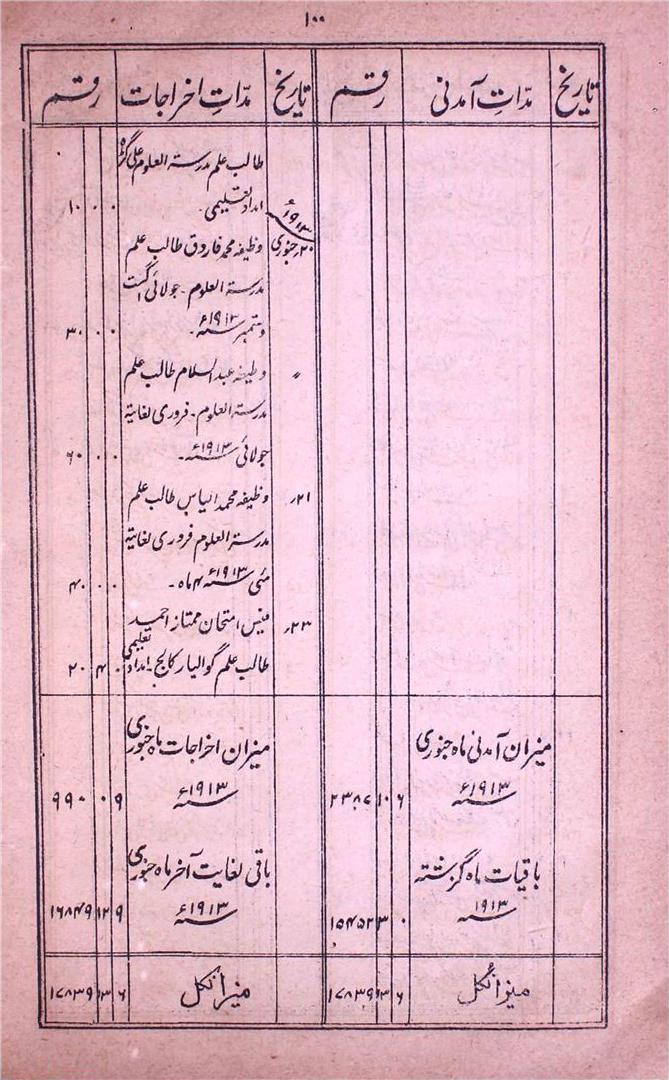 ۱۰۰
تاریخ مدّاتِ آمدنی رقم تاریخ مدّاتِ اخراجات رقم
طالب علم مدرسۃ العلوم علی گڑھ
امداد تعلیمی۔ ۰ ۰ ۱۰
۲۰؍جنوری ۱۹۱۳ء وظیفہ محمد فاروق طالب علم
مدرسۃ العلوم۔ جولائی اگست
وستمبر ۱۹۱۲ء۔ ۰ ۰ ۳۰
〃 وظیفہ عبدالسلام طالب علم
مدرسۃ العلوم۔ فروری لغایۃ
جولائی ۱۹۱۳ء۔ ۰ ۰ ۶۰
۲۱؍ وظیفہ محمد الیاس طالب علم
مدرسۃ العلوم فروری لغایۃ
مئی ۱۹۱۳ء ۴ ماہ۔ ۰ ۰ ۴۰
۲۳؍ فیس امتحان ممتاز احمد
طالب علم گوالیار کالج۔ امداد تعلیمی ۰ ۴ ۲۰
میزان آمدنی ماہ جنوری
۱۹۱۳ء ۶ ۱۰ ۲۳۸۷
میزان اخراجات ماہ جنوری
۱۹۱۳ء ۹ ۰ ۹۹۰
باقیات ماہ گزشتہ
۱۹۱۳ ۰ ۳ ۱۵۴۵۲
باقی لغایت آخر ماہ جنوری
۱۹۱۳ء ۹ ۱۲ ۱۶۸۴۹
میزان کل ۶ ۱۳ ۱۷۸۳۹
میزان کل ۶ ۱۳ ۱۷۸۳۹